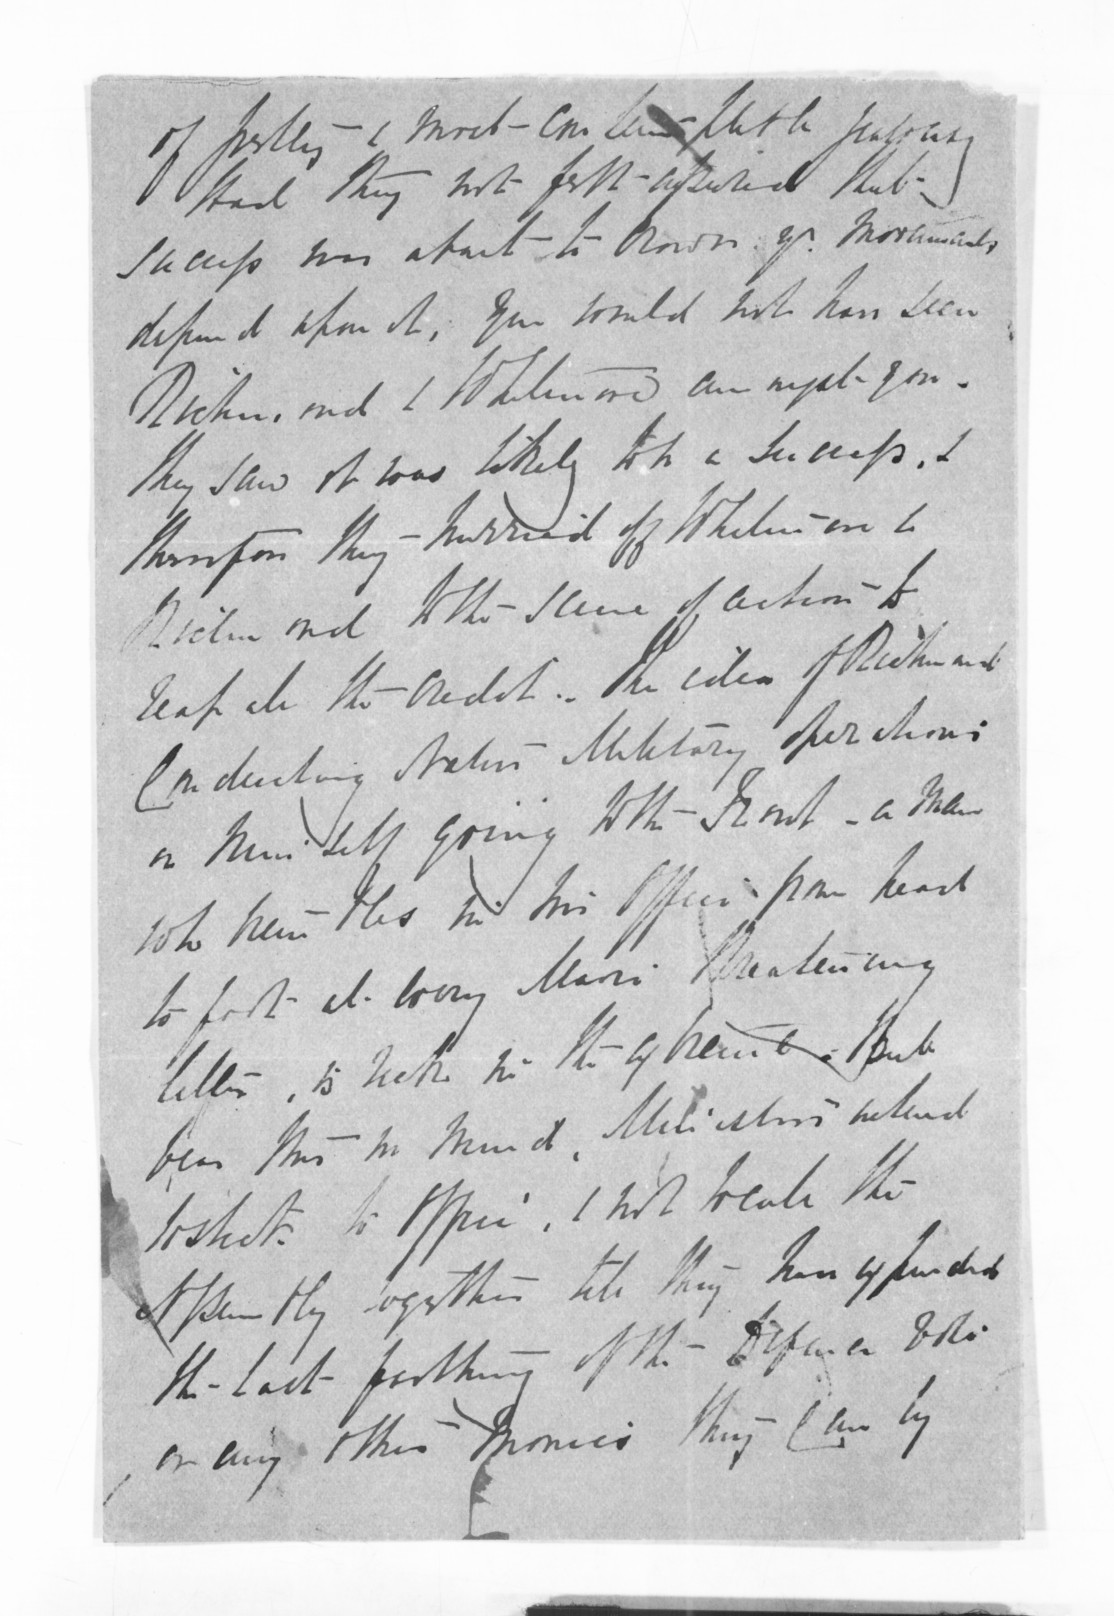 of petty & most contemptible jealousy
Had they not felt assured that
success was about to crown yr. movements
depend upon it, you would not have seen
Richmond & Whitmore amongst you.
They saw it was likely to be a success, &
therefore they hurried off Whitmore &
Richmond to the scene of action to
reap all the credit. The idea of Richmond
Conducting Native Military operations
or himself going to the Front - a man
who trembles in his Office from head
to foot at every Maori threatening
letter, is in the extreme. But
bear this in mind, Ministers intend
to stick to Office, & not the
Assembly together till they have expended
the last farthing of the Defence Vote
or any other Monies they Can by